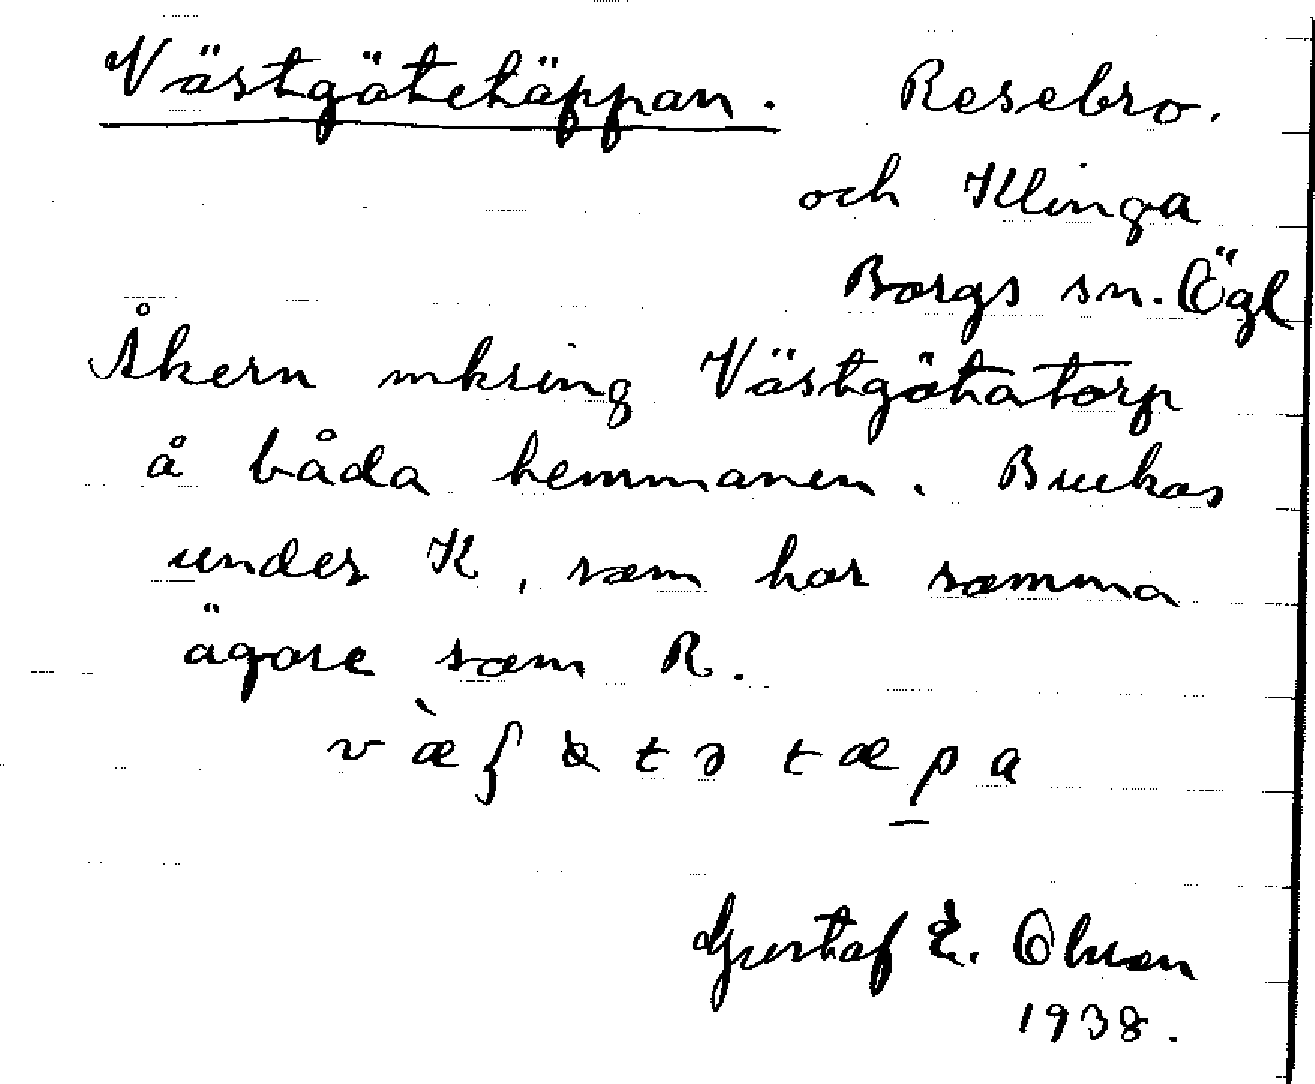 Västgötetäppan. Resebro.
och Klinga
Borgs sn. Ögl
Åkern mkring Västgötatorp
å båda hemmanen. Brukas
under K, som har samma
ägare som R.
Gustaf E. Olsson
1938.